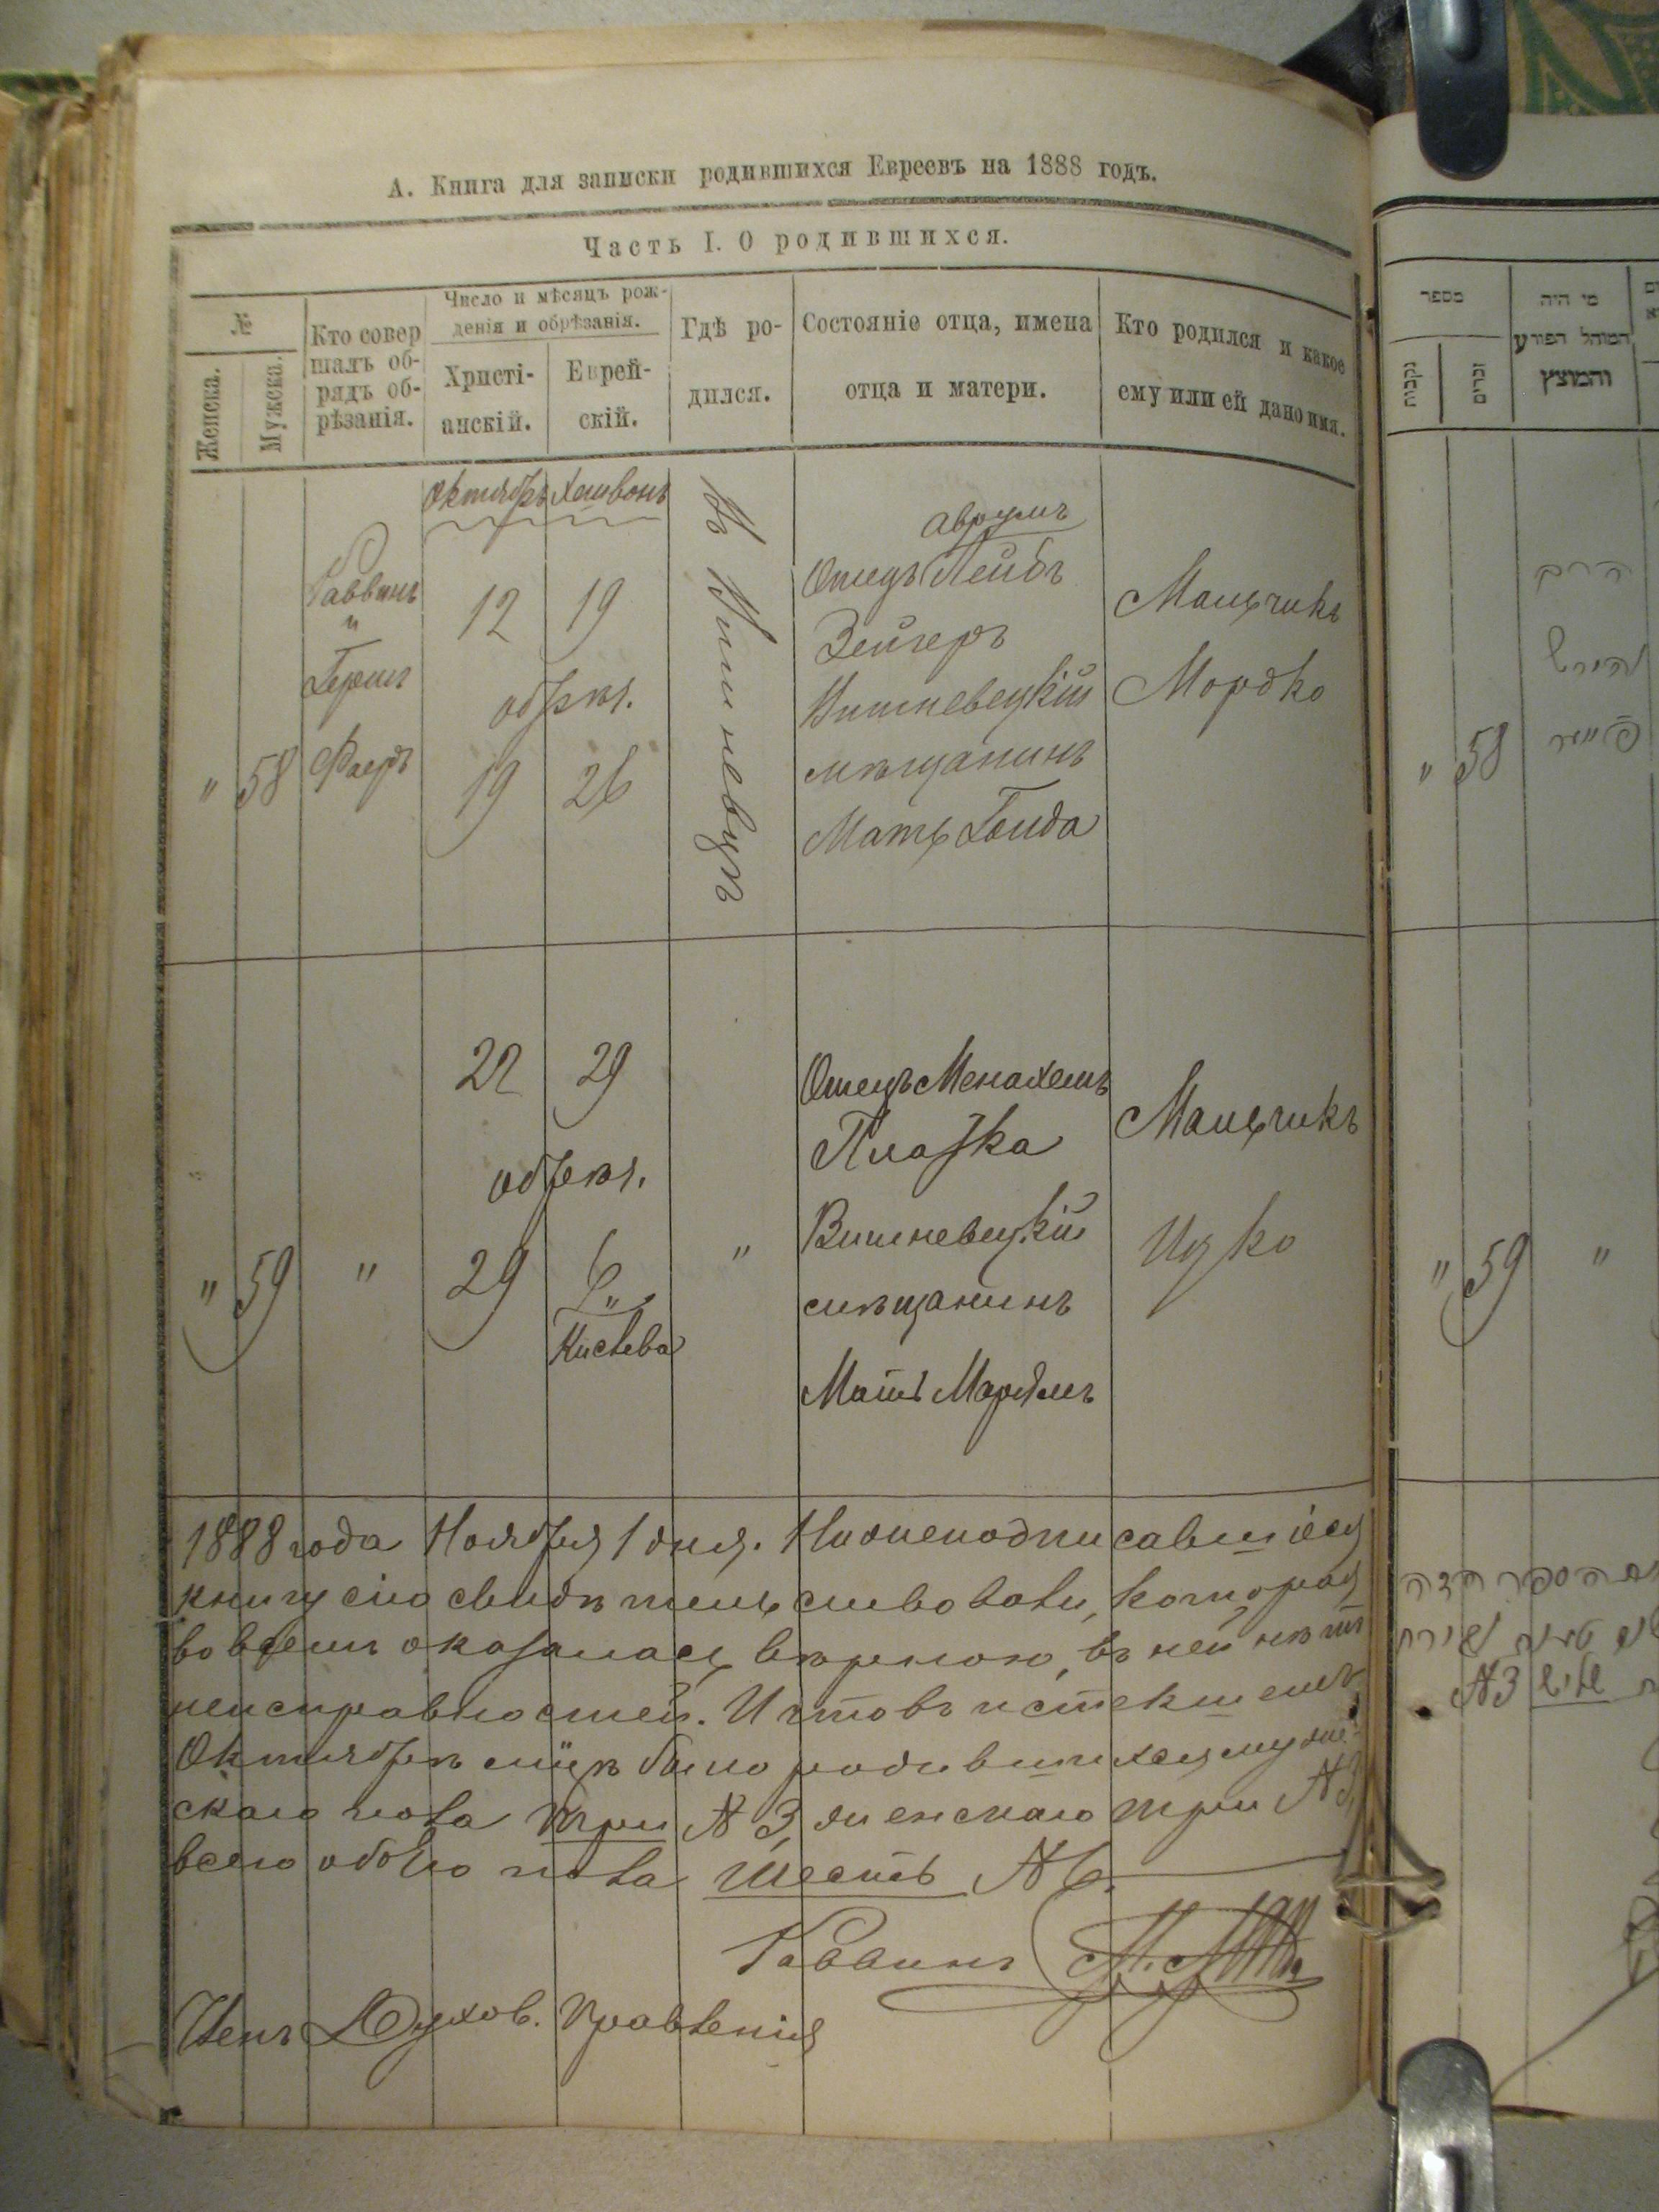 А. Книга для записки родившихся Евреевъ на 1888 годъ.
Часть I. О родившихся.
№
Женска.
Мужска.
Кто совер
шалъ об-
рядъ об-
рѣзанія.
Число и мѣсяцъ рож-
денія и обрѣзанія.
Христі-
анскій.
Еврей-
скій.
Гдѣ ро-
дился.
Состояніе отца, имена
отца и матери.
Кто родился и какое
ему или ей дано имя.
Октябрь Хешвонъ
" 58
Раввинъ
"
Герш
Фаеръ
12 19
обрѣз.
19 26
Въ Вишневцѣ
Аврумъ
Отецъ Лейбъ
Зейгеръ
Вишневецкій
мѣщанинъ
Мать Гольда
Мальчикъ
Мордко
" 59 "
22 29
обрѣз.
29 6
Кислева
"
Отецъ Менахемъ
Вишневецкій
мѣщанинъ
Мать Марьямъ
Мальчикъ
Ицко
1888 года Ноября 1 дня. Нижеподписавшіеся
книгу сію свидѣтельствовали, которая
во всемъ оказалась вѣрною, въ ней нѣтъ
неисправностей. И что въ истекшемъ
Октябрѣ мцѣ было родившихся муже-
скаго пола три № 3, женскаго три № 3,
всего обоего пола шесть № 6.
Раввинъ
Членъ Духов. Правленія
מספר
נקבות
זכרים
מי היה
המוהל הפורע
והמוצץ
" 58
" 59 "
№ 3